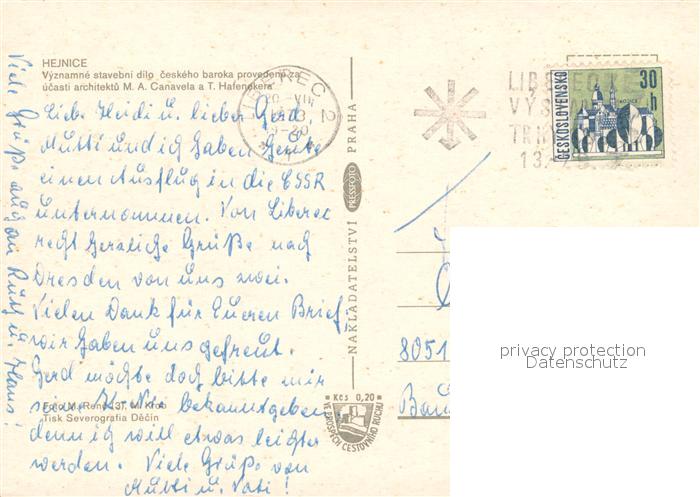 HEJNICE
Významné stavební dílo českého baroka provedené za
účasti architektů M. A. Canavela a T. Hafeneckera
Lieb. Heidi u. lieber Gerd,
Mutti und ich haben heute
einen Ausflug in die ČSSR
unternommen. Von Liberec
recht herzliche Grüße nach
Dresden von uns zwei.
Vielen Dank für Eueren Brief,
wir haben uns gefreut.
Gerd möchte doch bitte mir
seine Kto. Nr. bekanntgeben
denn ich will etwas leichter
werden. Viele Grüße von
Mutti u. Vati!
Viele Grüße auch von Ruth u. Hans!
Foto M. René (3), M. Krob
Tisk Severografia Děčín
NAKLADATELSTVÍ PRESSFOTO PRAHA
Kčs 0,20
VE PROSPĚCH CESTOVNÍHO RUCHU
LIBEREC 2
LIBERECKÉ
VÝS
TRH
13.
ČESKOSLOVENSKO
30
h
8051
Bau
privacy protection
Datenschutz